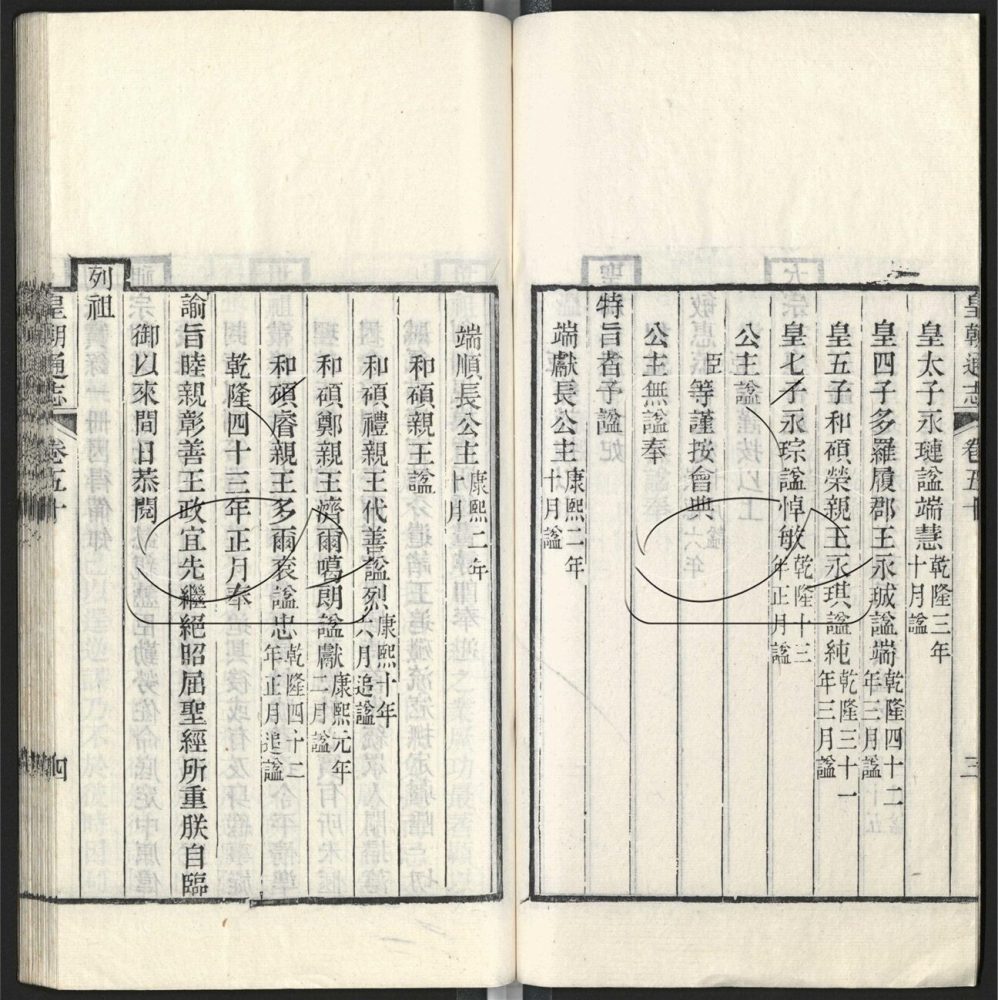 皇朝通志 卷五十 三
皇太子永璉諡端慧乾隆三年十月諡
皇四子多羅履郡王永珹諡端乾隆四十二年三月諡
皇五子和碩榮親王永琪諡純乾隆三十一年三月諡
皇七子永琮諡悼敏乾隆十三年正月諡
公主諡
臣等謹按會典
公主無諡奉
特旨者予諡
端獻長公主康熙二年十月諡
端順長公主康熙二年十月
和碩親王諡
和碩禮親王代善諡烈康熙十年六月追諡
和碩鄭親王濟爾噶朗諡獻康熙元年二月諡
和碩睿親王多爾袞諡忠乾隆四十三年正月追諡
乾隆四十三年正月奉
諭旨睦親彰善王政宜先繼絕昭屈聖經所重朕自臨
御以來間日恭閱
列祖
皇朝通志 卷五十 四